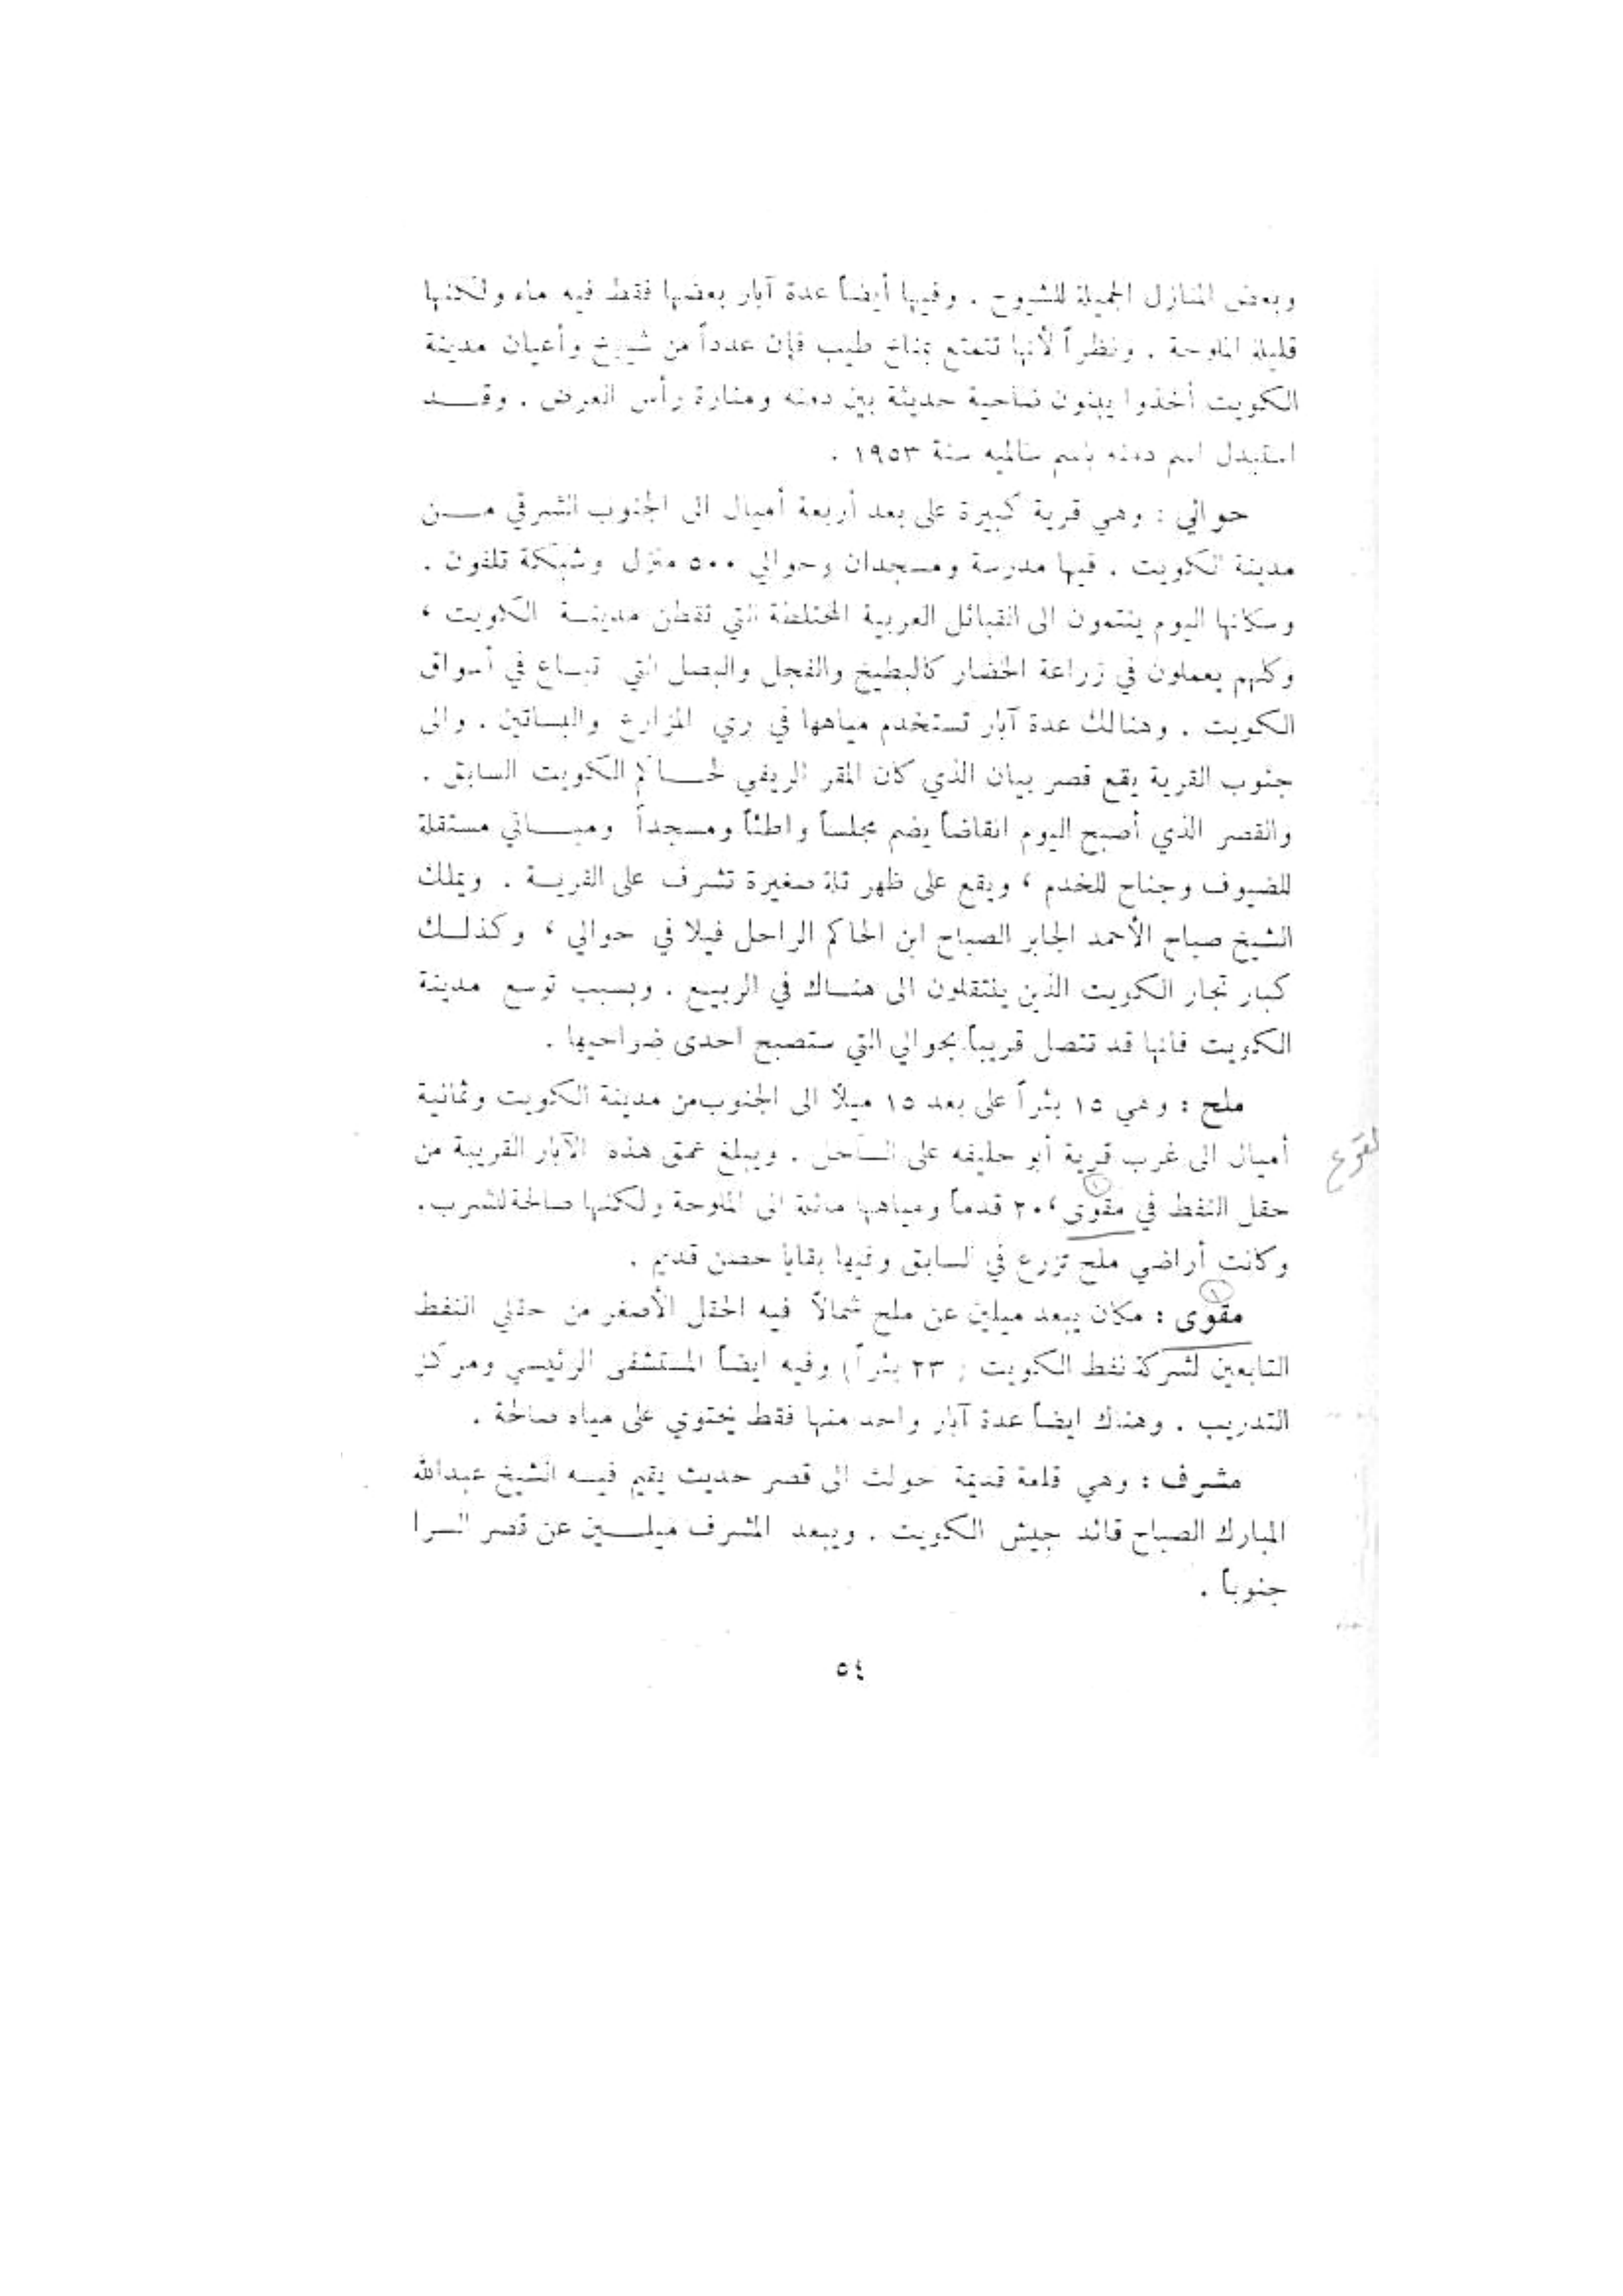 وبعض المنازل الجميلة للشيوخ . وفيها أيضاً عدة آبار بعضها فقط فيه ماء ولكنها
قليلة الملوحة . ونظراً لأنها تتمتع بمناخ طيب فإن عدداً من شيوخ وأعيان مدينة
الكويت أخذوا يبنون ضاحية حديثة بين دمنه ومنارة رأس العرض . وقـــد
استبدل اسم دمنه باسم سالميه سنة ١٩٥٣ .
حوالي : وهي قرية كبيرة على بعد أربعة أميال الى الجنوب الشرقي مـــن
مدينة الكويت . فيها مدرسة ومسجدان وحوالي ٥٠٠ منزل وشبكة تلفون .
وسكانها اليوم ينتمون الى القبائل العربية المختلطة التي تقطن مدينـة الكويت ،
وكلهم يعملون في زراعة الخضار كالبطيخ والفجل والبصل التي تبـاع في أسواق
الكويت . وهنالك عدة آبار تستخدم مياهها في ري المزارع والبساتين . والى
جنوب القرية يقع قصر بيان الذي كان المقر الريفي لحـــاكم الكويت السابق .
والقصر الذي أصبح اليوم انقاضاً يضم مجلساً واطئاً ومسجداً ومبـــاني مستقلة
للضيوف وجناح للخدم ، ويقع على ظهر تلة صغيرة تشرف على القريـة . ويملك
الشيخ صباح الأحمد الجابر الصباح ابن الحاكم الراحل فيلا في حوالي ، وكذلـك
كبار تجار الكويت الذين ينتقلون الى هنـاك في الربيـع . وبسبب توسع مدينة
الكويت فانها قد تتصل قريباً بحوالي التي ستصبح احدى ضواحيها .
ملح : وهي ١٥ بئراً على بعد ١٥ ميلاً الى الجنوب من مدينة الكويت وثمانية
أميال الى غرب قرية أبو حليفه على الساحل . ويبلغ عمق هذه الآبار القريبة من
حقل النفط في مقوى ، ٢٠ قدماً ومياهها مائلة الى الملوحة ولكنها صالحة للشرب .
وكانت أراضي ملح تزرع في السابق وفيها بقايا حصن قديم .
مقوى : مكان يبعد ميلين عن ملح شمالاً فيه الحقل الأصغر من حقلي النفط
التابعين لشركة نفط الكويت ( ٢٣ بئراً ) وفيه ايضاً المستشفى الرئيسي ومركز
التدريب . وهناك ايضاً عدة آبار واحد منها فقط يحتوي على مياه صالحة .
مشرف : وهي قلعة قديمة حولت الى قصر حديث يقيم فيـه الشيخ عبدالله
المبارك الصباح قائد جيش الكويت . ويبعد المشرف ميلـــين عن قصر السرا
جنوباً .
٥٤